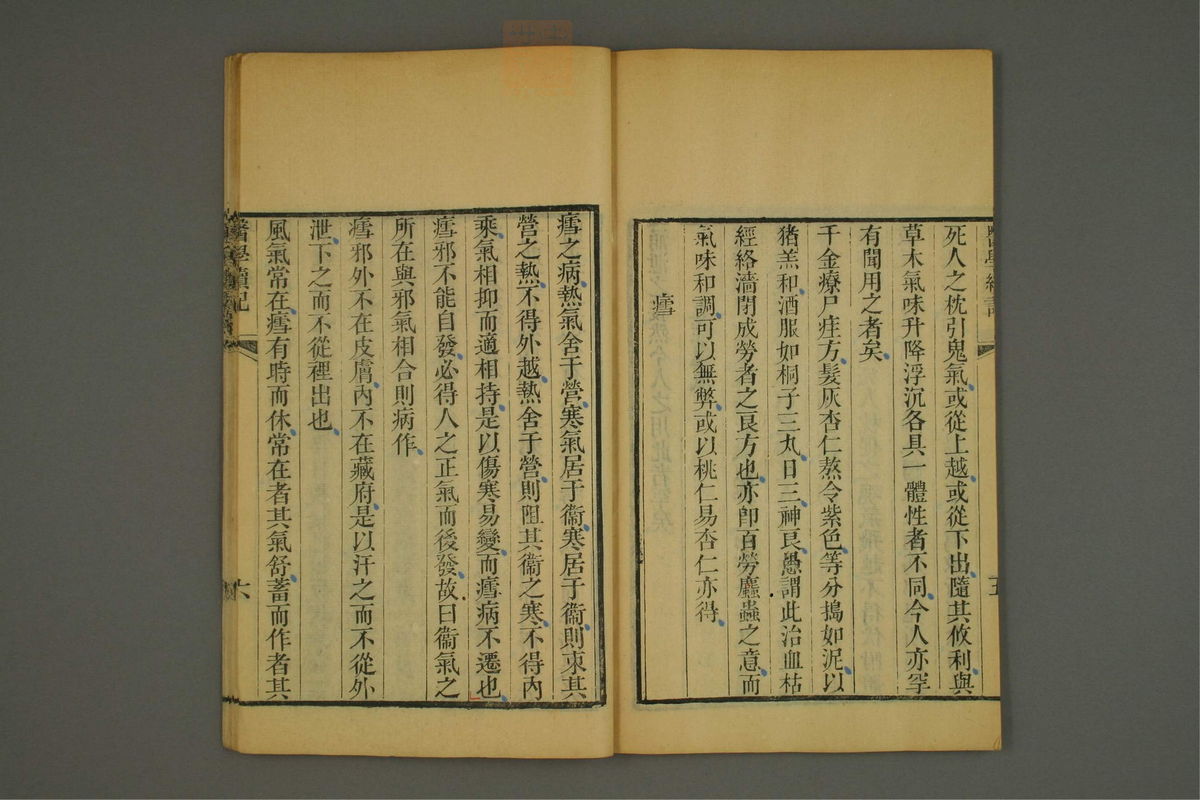 醫學續記
五
死人之枕引鬼氣或從上越或從下出隨其攸利與
草木氣味升降浮沉各具一體性者不同今人亦罕
有聞用之者矣
千金療尸疰方髮灰杏仁熬令紫色等分搗如泥以
猪羔和酒服如桐子三丸日三神良愚謂此治血枯
經絡濇閉成勞者之良方也亦卽百勞䗪蟲之意而
氣味和調可以無弊或以桃仁易杏仁亦得
瘧
瘧之病熱氣舍于營寒氣居于衞寒居于衞則束其
營之熱不得外越熱舍于營則阻其衞之寒不得內
乘氣相抑而適相持是以傷寒易變而瘧病不遷也
瘧邪不能自發必得人之正氣而後發故曰衞氣之
所在與邪氣相合則病作
瘧邪外不在皮膚內不在藏府是以汗之而不從外
泄下之而不從裡出也
風氣常在瘧有時而休常在者其氣舒蓄而作者其
醫學讀記
六